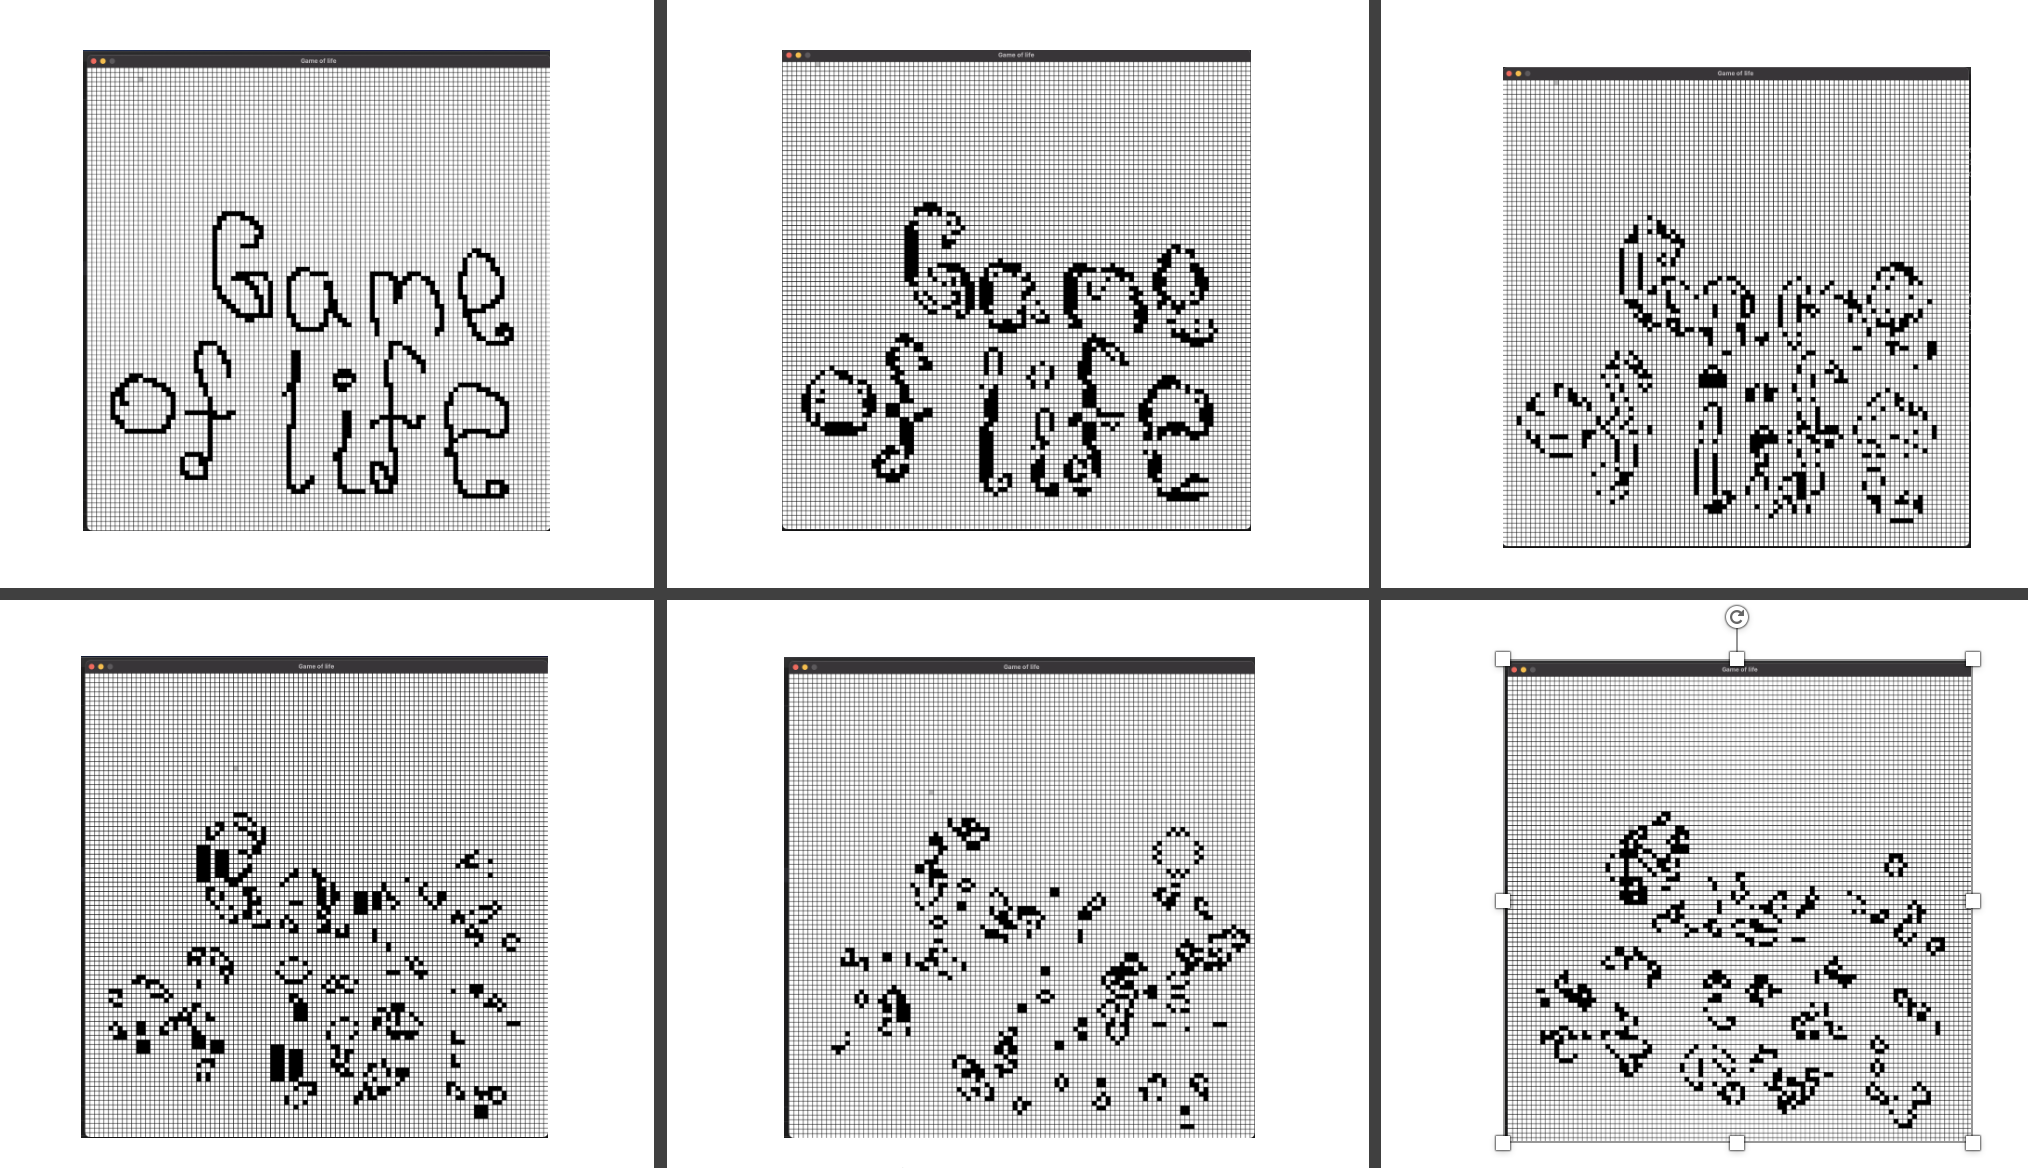 Game of life
Game
of life
Game of life
Game
of life
Game of life
Game of life
Game of life
Game of life